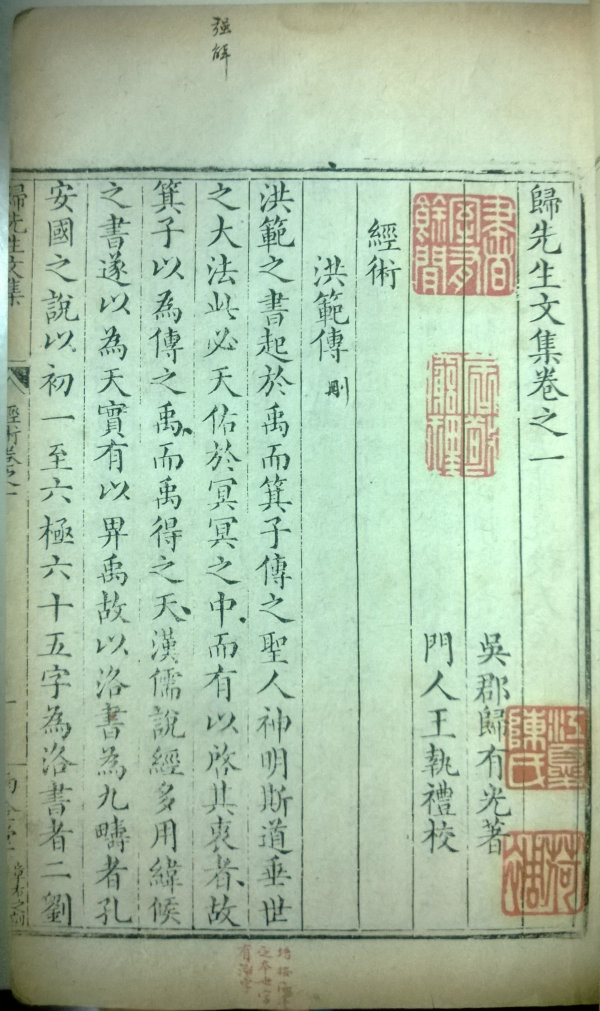 歸先生文集卷之一
吳郡歸有光著
門人王執禮校
經術
洪範傳
洪範之書起於禹而箕子傳之聖人神明斯道垂世
之大法此必天佑於冥冥之中而有以啓其衷者故
箕子以為傳之禹而禹得之天漢儒說經多用緯候
之書遂以為天實有以畀禹故以洛書為九疇者孔
安國之說以初一至六極六十五字為洛書者二劉
歸先生文集
強解
江夏陳氏